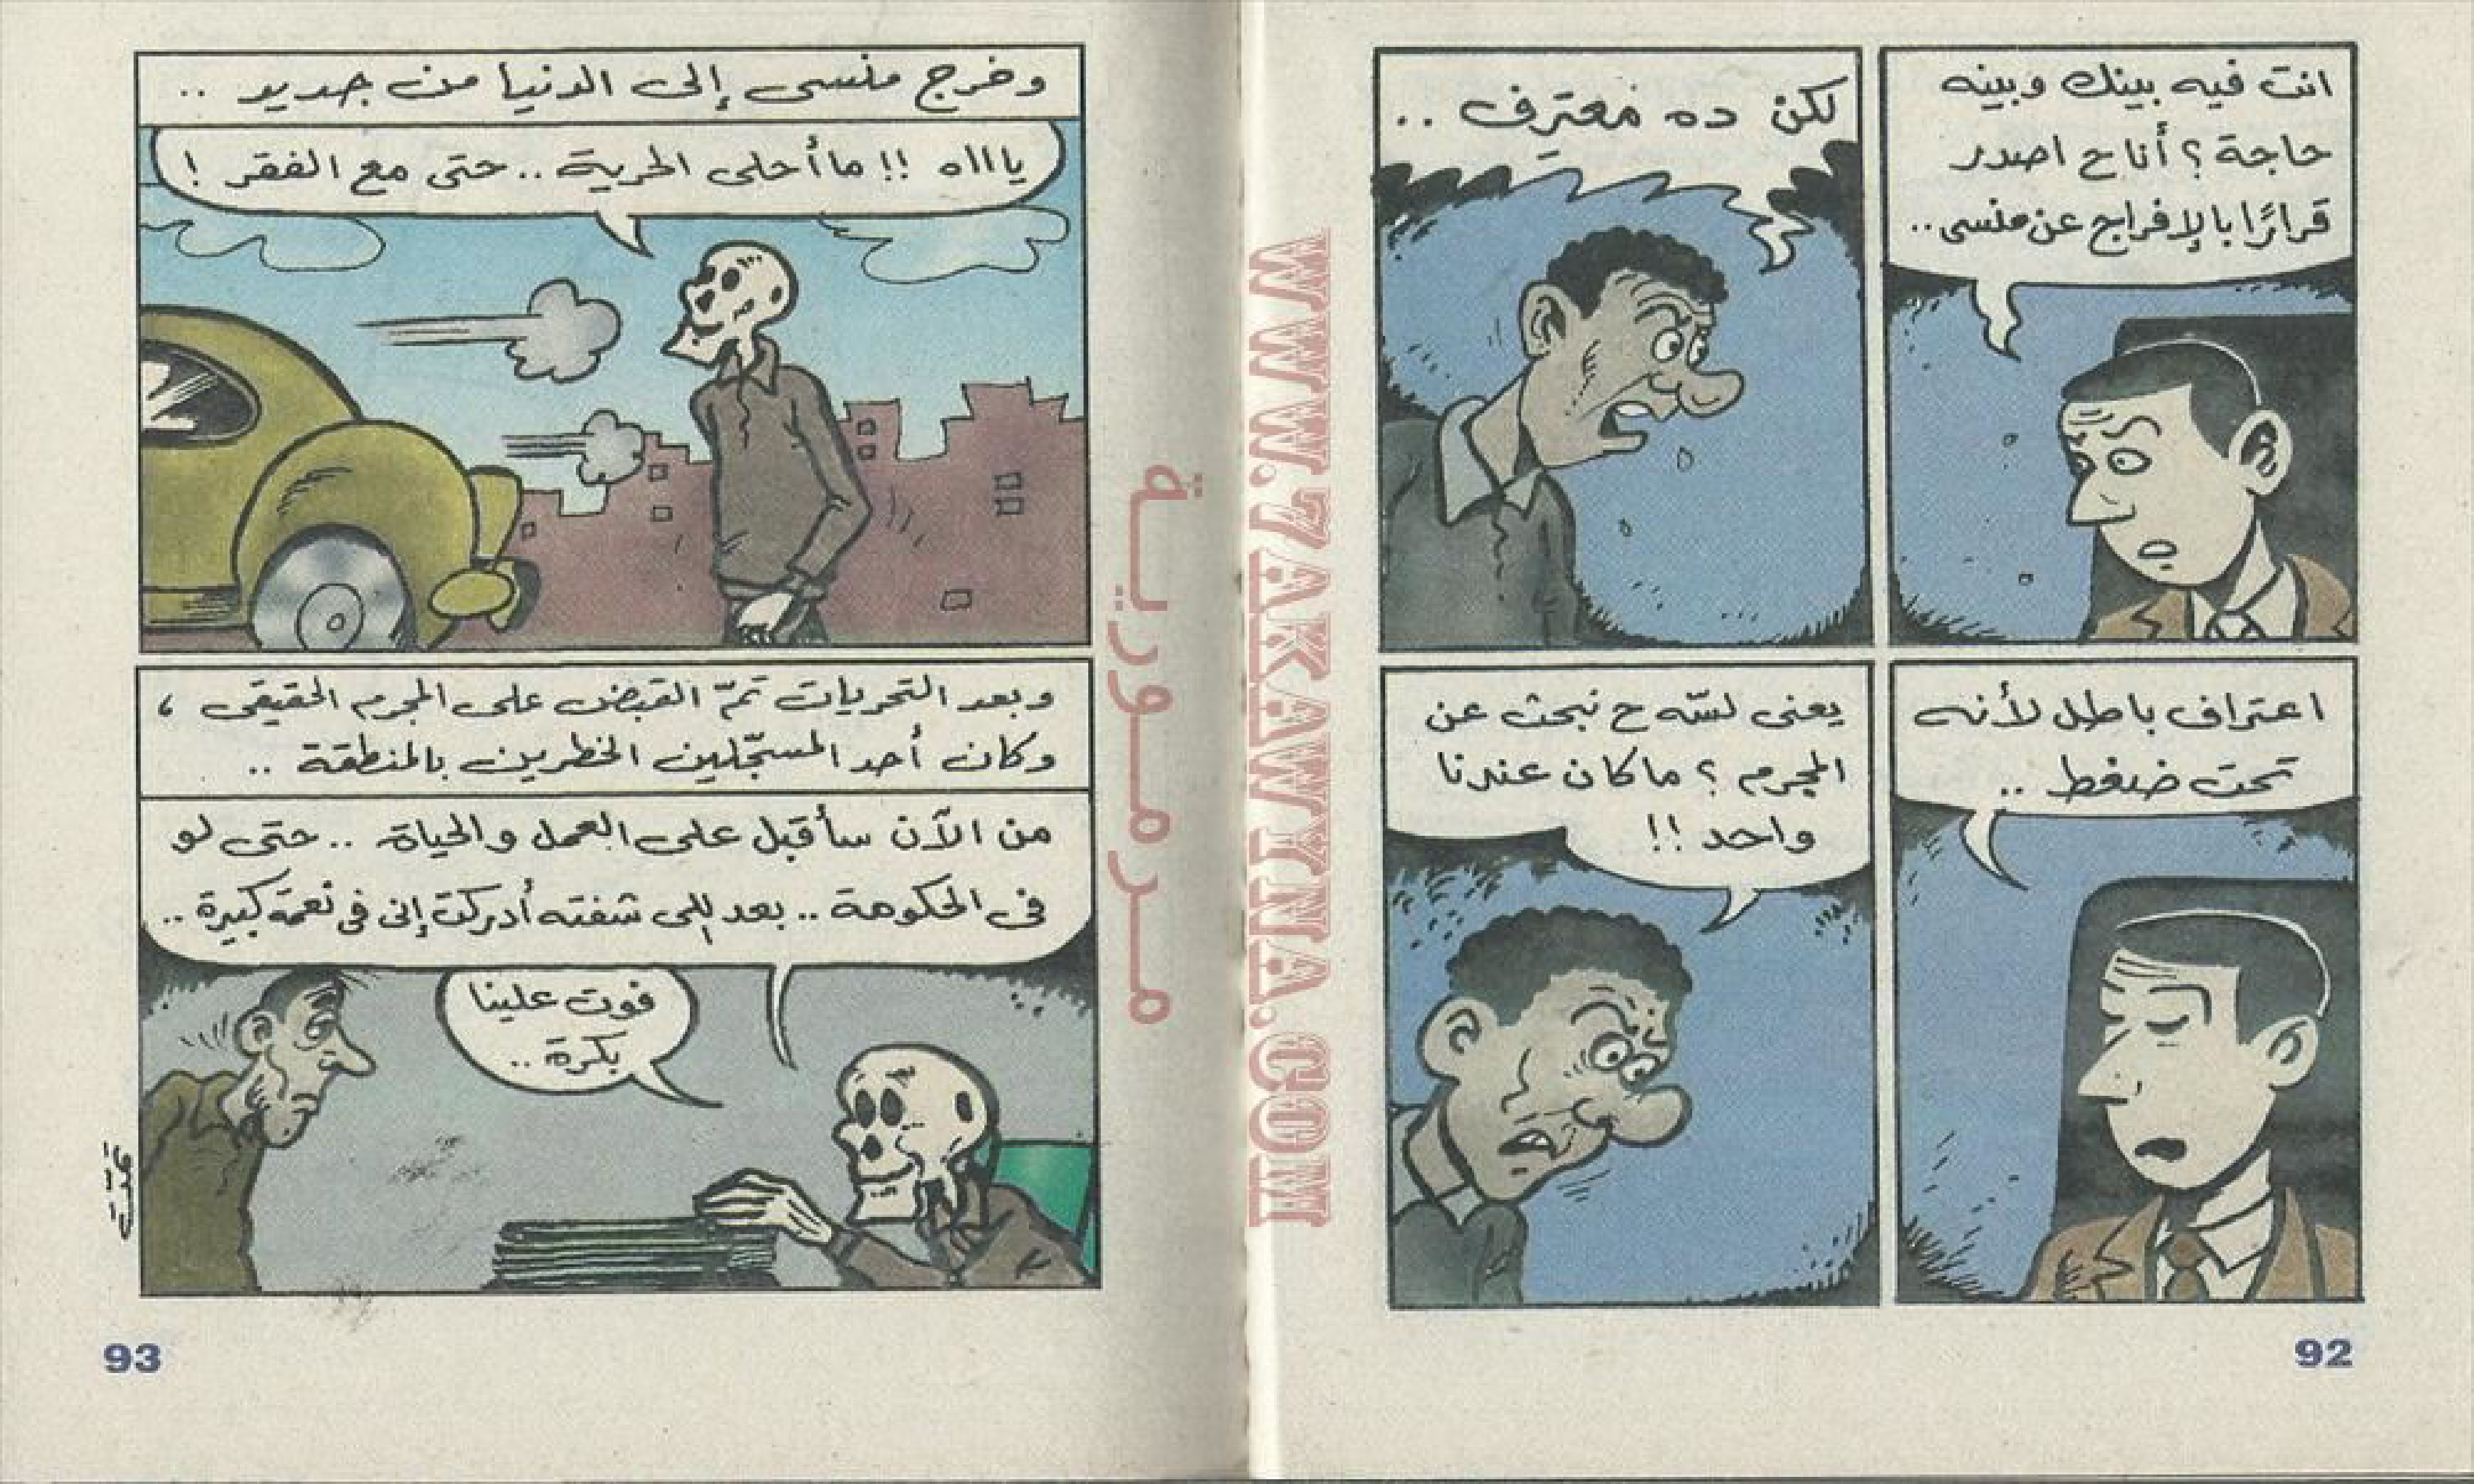 انت فيه بينك وبينه
حاجة؟ أنا ح اصدر
قرارًا بالإفراج عن منسى..
لكن ده معترِف ..
اعتراف باطل لأنه
تحت ضغط ..
يعنى لسّه ح نبحث عن
المجرم؟ ما كان عندنا
واحد !!
92
وخرج منسى إلى الدنيا من جديد ..
ياااه !! ما أحلى الحرية .. حتى مع الفقر !
وبعد التحريات تمّ القبض على المجرم الحقيقى ،
وكان أحد المسجّلين الخطرين بالمنطقة ..
من الآن سأقبل على العمل والحياة .. حتى لو
فى الحكومة .. بعد إللى شفته أدركت إنى فى نعمة كبيرة ..
فوت علينا
بكرة ..
93
مرمورية
WWW.7AKAWYINA.COM